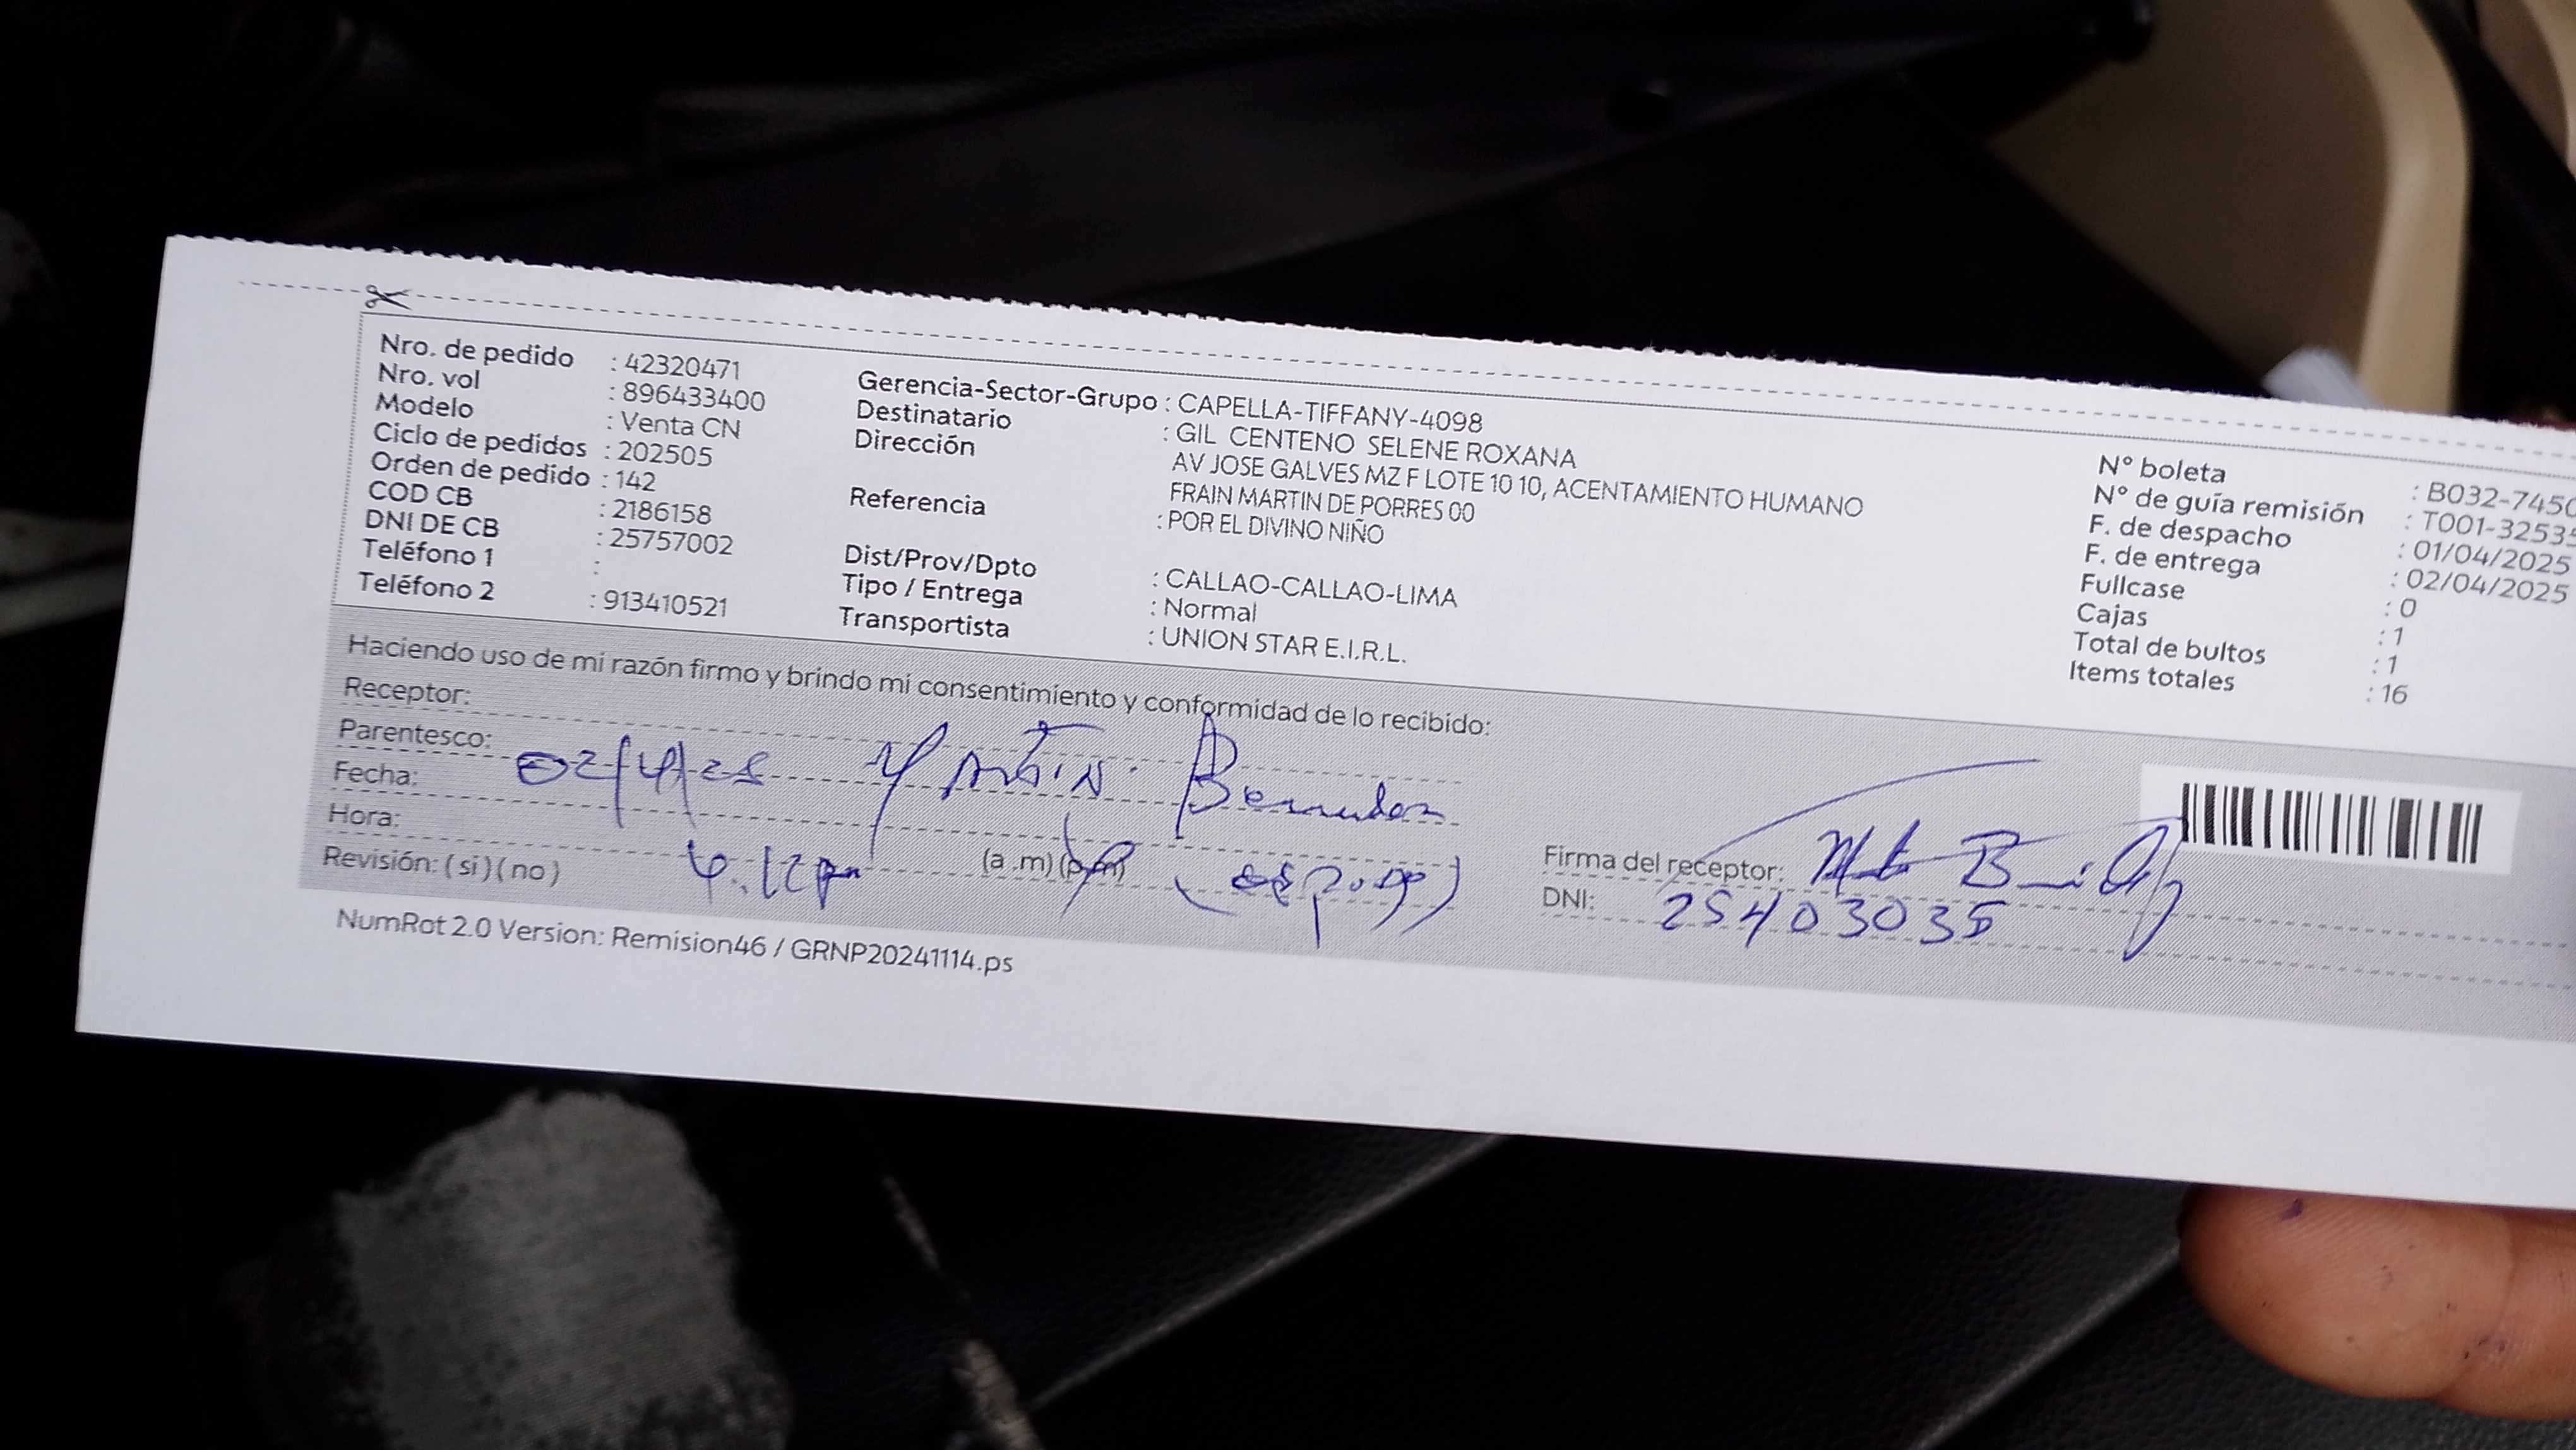 Nro. de pedido : 42320471
Nro. vol : 896433400
Modelo : Venta CN
Ciclo de pedidos : 202505
Orden de pedido : 142
COD CB : 2186158
DNI DE CB : 25757002
Teléfono 1 :
Teléfono 2 : 913410521
Gerencia-Sector-Grupo : CAPELLA-TIFFANY-4098
Destinatario : GIL CENTENO SELENE ROXANA
Dirección AV JOSE GALVES MZ F LOTE 10 10, ACENTAMIENTO HUMANO
FRAIN MARTIN DE PORRES 00
Referencia : POR EL DIVINO NIÑO
Dist/Prov/Dpto : CALLAO-CALLAO-LIMA
Tipo / Entrega : Normal
Transportista : UNION STAR E.I.R.L.
N° boleta : B032-7450
N° de guía remisión : T001-32535
F. de despacho : 01/04/2025
F. de entrega : 02/04/2025
Fullcase : 0
Cajas : 1
Total de bultos : 1
Items totales : 16
Haciendo uso de mi razón firmo y brindo mi consentimiento y conformidad de lo recibido:
Receptor:
Parentesco:
Fecha: 02/4/25 Martin
Hora:
Revisión: (si) (no) (a .m) (p.m) (esposo)
Firma del receptor:
DNI: 25403035
NumRot 2.0 Version: Remision46 / GRNP20241114.ps